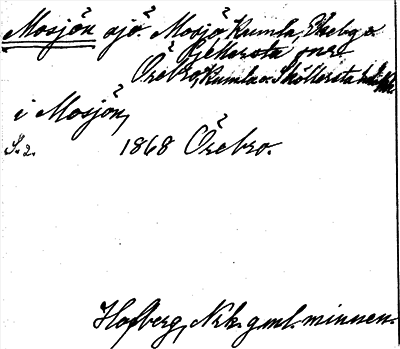 Mosjön sjö Mosjö, Kumla, Ekeby o
Gellersta snr
Örebro, Kumla o. Sköllersta hdr
i Mosjön,
S. 2. 1868 Örebro.
Hofberg, Nrk. gml. minnen.